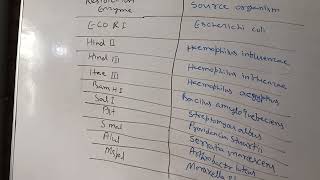 Restriction Source organism
Enzyme
ECO RI Escherichi coli
Hind II Haemophilus influenzae
Hind III Haemophilus influenzae
Hae III Haemophilus aegyptius
Bam HI Bacillus amyloliquefaciens
Sal I Streptomyces albus
Pst Providencia Stuartii
Sma I Serratia marcescens
Alu I Arthrobacter luteus
Moraxella